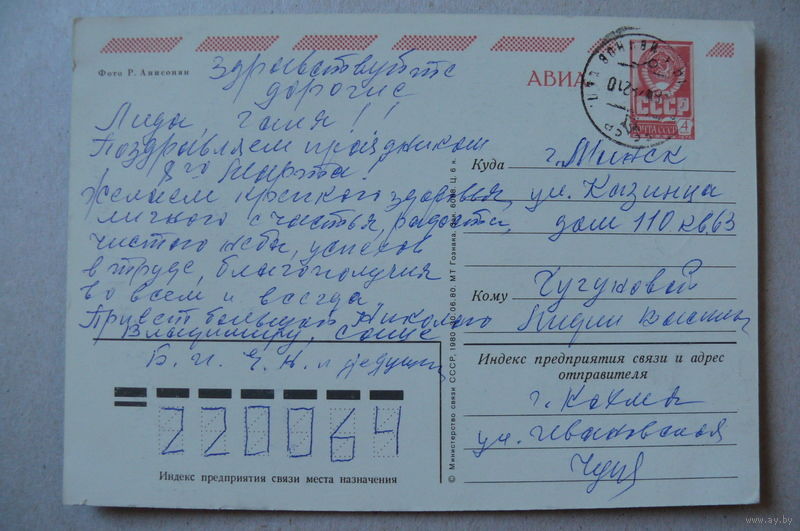 Фото Р. Анисонян
Здравствуйте
дорогие
Лида Галя!!
Поздравляем праздником
8го Марта!
Желаем крепкого здоровья,
личного счастья, радости,
чистого неба, успехов
в труде, благополучия
во всем и всегда.
Привет большой Николаю
Владимиру, Саше
Б. И. Г. Н. и дедушки
220064
Индекс предприятия связи места назначения
© Министерство связи СССР, 1980
АВИА
СССР
ПОЧТА СССР
4
Куда г. Минск
ул. Казинца
дом 110 кв 63
Кому Чугуновой
Лидии
Индекс предприятия связи и адрес
отправителя
г. Кохма
ул. Ивановская
www.ay.by